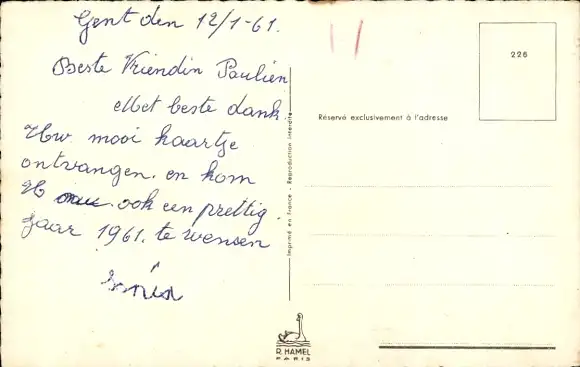 Gent den 12/1-61.
Beste Vriendin Paulien
Met beste dank
Uw. mooi kaartje
ontvangen. en kom
U ook een prettig
Jaar 1961. te wensen
226
Réservé exclusivement à l'adresse
Imprimé en France - Reproduction interdite
R. HAMEL
PARIS